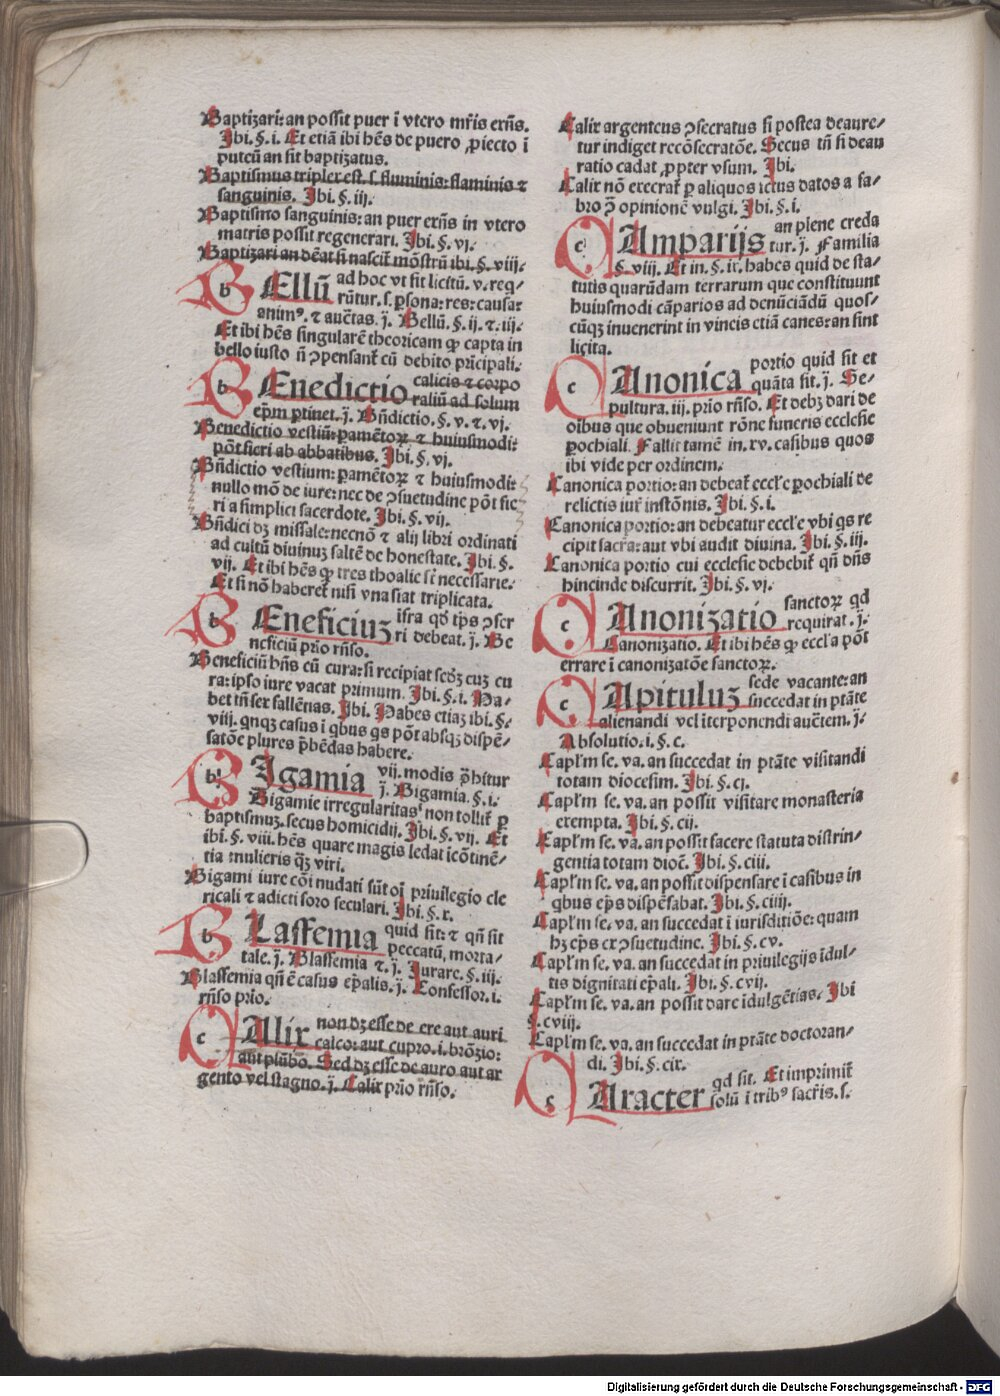 Baptizari: an possit puer ī vtero mr̄is exñs.
Ibi. §. i. Et etiā ibi hēs de puero ꝓiecto ī
puteū an sit baptizatus.
Baptismus triplex est. s. fluminis: flaminis ⁊
sanguinis. Ibi. §. iij.
Baptismo sanguinis: an puer exñs in vtero
matris possit regenerari. Ibi. §. vj.
Baptizari an dēat si nascit̄ mōstrū ibi. §. viij.
b ELlū ad hoc vt sit licitū. v. req-
rūtur. s. ꝑsona: res: causa:
animꝰ. ⁊ auctas. j̄. Bellū. §. ij. ⁊. iij.
Et ibi hēs singularē theoricam ꝙ capta in
bello iusto ñ ↄpensant̄ cū debito pricipali.
b Enedictio calicis ⁊ corpo
raliū ad solum
ep̄m ptinet. j̄. Bn̄dictio. §. v. ⁊. vj.
Benedictio vestiū: ꝑamētoꝝ ⁊ huiusmodi:
pōt fieri ab abbatibus. Ibi. §. vj.
Bn̄dictio vestium: ꝑamētoꝝ ⁊ huiusmodi:
nullo mō de iure: nec de ↄsuetudine pōt fie
ri a simplici sacerdote. Ibi. §. vij.
Bn̄dici dꝫ missale: necnō ⁊ alij libri ordinati
ad cultū diuinuꝫ saltē de honestate. Ibi. §.
vij. Et ibi hēs ꝙ tres thoalie sūt necessarie.
Et si nō haberet̄ nisi vna fiat triplicata.
b Eneficiuꝫ ifra qd̄ tp̄s ↄfer
ri debeat. j̄. Be
neficiū prio rn̄so.
Beneficiū hn̄s cū cura: si recipiat scd̄ꝫ cuꝫ cu
ra: ipso iure vacat primum. Ibi. §. i. Ha-
bet tn̄ ser fallētias. Ibi. Habes etiaꝫ ibi. §.
viij. qnqꝫ casus ī qbus qs pōt absqꝫ dispē-
satōe plures p̄bēdas habere.
b Igamia vij. modis p̄hibitur
j̄. Bigamia. §. i.
Bigamie irregularitas non tollit̄ ꝑ
baptismuꝫ. secus homicidij. Ibi. §. vij. Et
ibi. §. viij. hēs quare magis ledat icōtinē-
tia mulieris qꝫ viri.
Bigami iure cōi nudati sūt oī priuilegio cle
ricali ⁊ adicti foro seculari. Ibi. §. x.
b Lasfemia quid sit: ⁊ qn̄ sit
peccatū, morta-
tale. j̄. Blasfemia ⁊. j̄. Iurare. §. iij.
Blasfemia qn̄ ē casus ep̄alis. j̄. Confessor. i.
rn̄so prio.
c Alix non dꝫ esse de ere aut auri
calco: aut cupro. i. brōzio:
aut plūbo. Sed dꝫ esse de auro aut ar
gento vel stagno. j̄. Calix prio rn̄so.
Calix argenteus ↄsecratus si postea deaure-
tur indiget recōsecratōe. Secus tn̄ si deau
ratio cadat ꝓpter vsum. Ibi.
Calix nō execrat̄ ꝑ aliquos ictus datos a fa-
bro ꝓ opinionē vulgi. Ibi. §. i.
c Amparijs an plene creda
tur. j̄. Familia
§. viij. Et in. §. ix. habes quid de sta-
tutis quarūdam terrarum que constituunt
huiusmodi cāparios ad denūciādū quos-
cūqꝫ inuenerint in vineis etiā canes: an sint
licita.
c Anonica portio quid sit et
quāta sit. j̄. Se-
pultura. iij. prio rn̄so. Et debꝫ dari de
oībus que obueniunt rōne funeris ecclesie
ꝑochiali. Fallit tamē in. xv. casibus quos
ibi vide per ordinem.
Canonica portio: an debeat̄ eccl'e ꝑochiali de
relictis iur̄ instōnis. Ibi. §. i.
Canonica portio: an debeatur eccl'e vbi qs re
cipit sacra: aut vbi audit diuina. Ibi. §. iij.
Canonica portio cui ecclesie debebit̄ qn̄ dn̄s
hincinde discurrit. Ibi. §. vj.
c Anonizatio sanctoꝝ qd
requirat. j̄.
Canonizatio. Et ibi hēs ꝙ eccl'a pōt
errare ī canonizatōe sanctoꝝ.
c Apituluꝫ sede vacante: an
succedat in ptāte
alienandi vel iterponendi auctem. j̄.
Absolutio. i. §. c.
Capl'm se. va. an succedat in ptāte visitandi
totam diocesim. Ibi. §. cj.
Capl'm se. va. an possit visitare monasteria
exempta. Ibi. §. cij.
Capl'm se. va. an possit facere statuta distrin-
gentia totam dioc̄. Ibi. §. ciij.
Capl'm se. va. an possit dispensare ī casibus in
qbus ep̄s dispēsabat. Ibi. §. ciiij.
Capl'm se. va. an succedat ī iurisditiōe: quam
hꝫ ep̄s ex ↄsuetudine. Ibi. §. cv.
Capl'm se. va. an succedat in priuilegijs īdul-
tis dignitati ep̄ali. Ibi. §. cvij.
Capl'm se. va. an possit dare īdulgētias. Ibi
§. cviij.
Capl'm se. va. an succedat in ptāte doctoran-
di. Ibi. §. cix.
c Aracter qd sit. Et imprimit̄
solū ī tribꝰ sacr̄is. s.
Digitalisierung gefördert durch die Deutsche Forschungsgemeinschaft - DFG